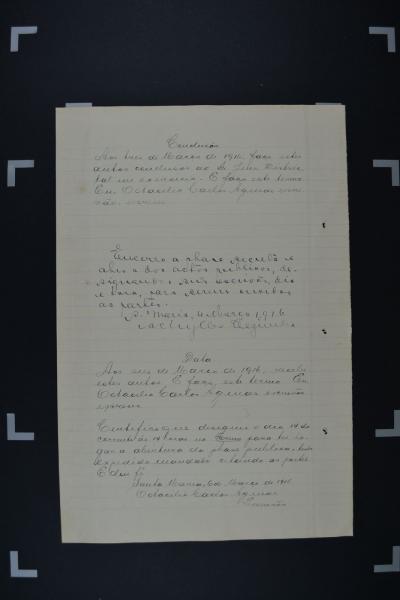 Conclusão
Aos tres de Março de 1916, faço estes
autos conclusos ao Sr. Juiz Distric
tal em exercicio. E faço este termo
Eu, Octacilio Carlos Aguiar escri
vão, escrevi
Encerro a phase
abro a dos actos publicos, de-
signando o escrivão, dia
e hora, para serem
as partes.
Sta Maria, 4 Março 1916
Data
Aos seis de Março de 1916, recebi
estes autos. E faço, este termo. Eu
Octacilio Carlos Aguiar escrivão
escrevi
Certifico que designei o dia 14 do
corrente ás 14 horas no Forum para ter lo-
gar a abertura da phase publica,
expedido mandado citando as partes
E dou fé
Santa Maria, 6 de Março de 1916
Octacilio Carlos Aguiar
Escrivão